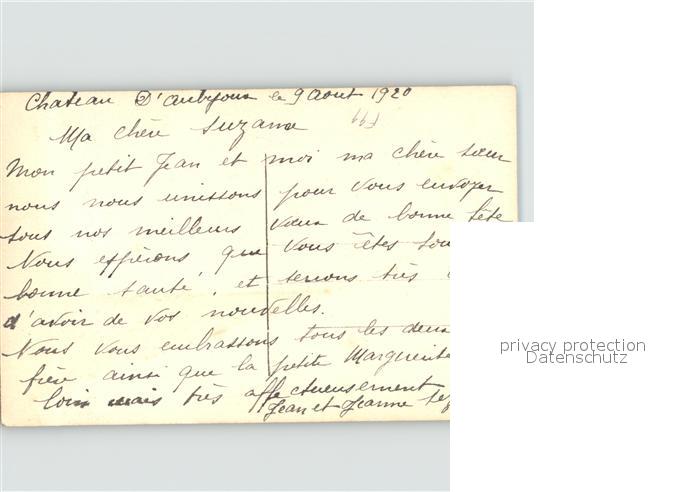 Chateau D'Aubijoux le 9 Aout 1920
F99
Ma chère Suzanne
Mon petit Jean et moi ma chère sœur
nous nous unissons pour vous envoyer
tous nos meilleurs vœux de bonne fête
Nous espérons que vous êtes
bonne santé, et serions très
d'avoir de vos nouvelles.
Nous vous embrassons tous les deux
ainsi que la petite Marguerite
loin mais très affectueusement
Jean et Jeanne
privacy protection
Datenschutz